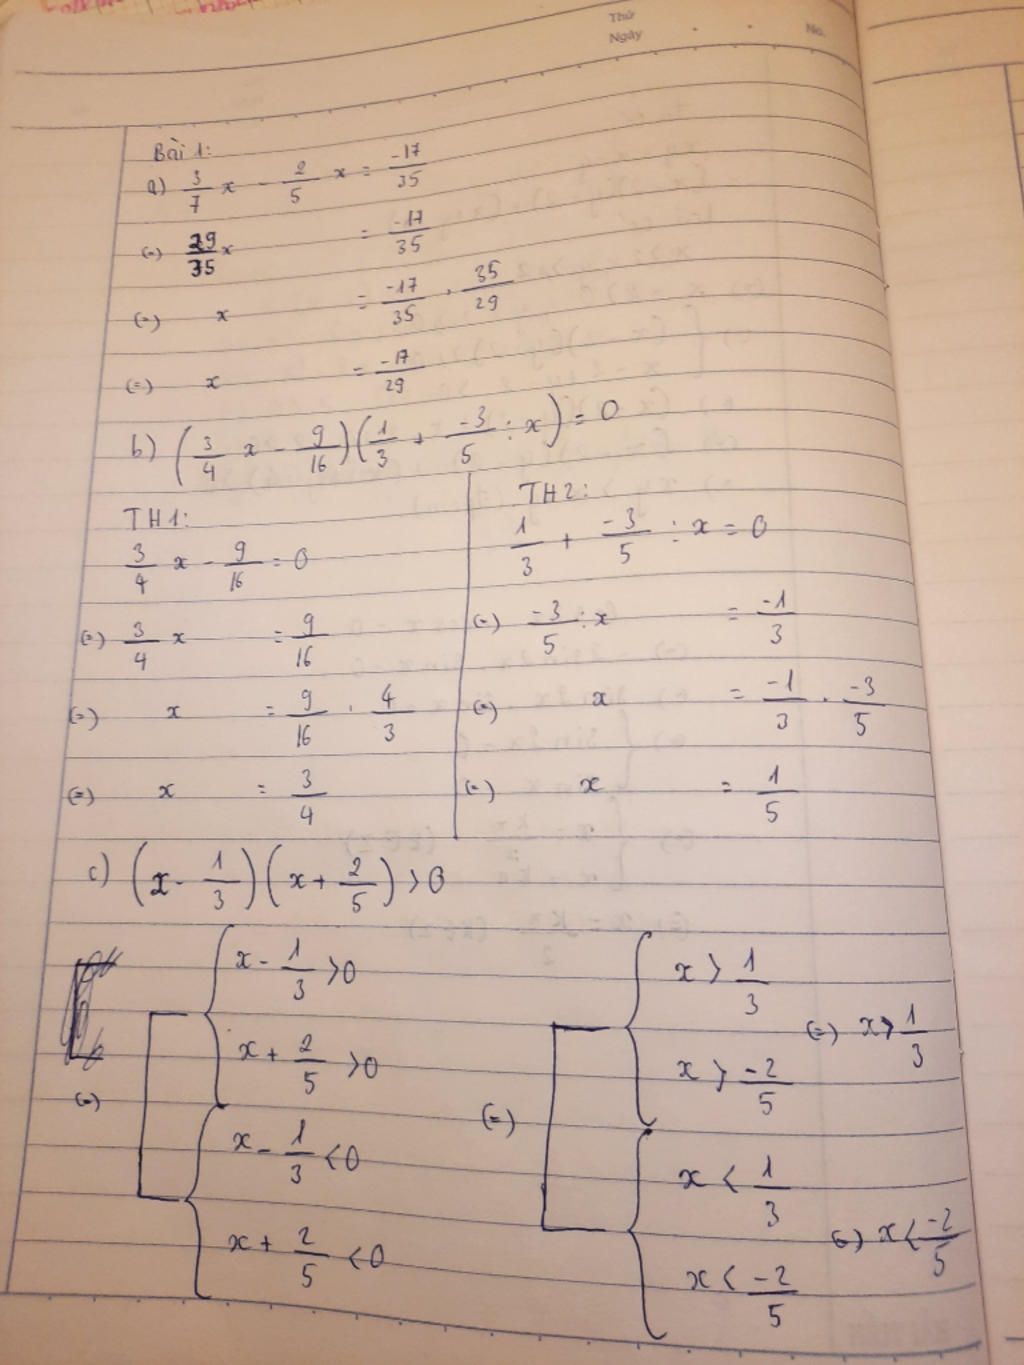 Thứ
Ngày
No.
Bài 1:
a) 3/7 x - 2/5 x = -17/35
(=) 29/35 x = -17/35
(=) x = -17/35 . 35/29
(=) x = -17/29
b) (3/4 x - 9/16)(1/3 + -3/5 : x) = 0
TH1:
3/4 x - 9/16 = 0
(=) 3/4 x = 9/16
(=) x = 9/16 . 4/3
(=) x = 3/4
TH2:
1/3 + -3/5 : x = 0
(=) -3/5 : x = -1/3
(=) x = -1/3 . -3/5
(=) x = 1/5
c) (x - 1/3)(x + 2/5) > 0
(=) [ { x - 1/3 > 0
x + 2/5 > 0
{ x - 1/3 < 0
x + 2/5 < 0
(=) [ { x > 1/3
x > -2/5
(=) x > 1/3
{ x < 1/3
x < -2/5
(=) x < -2/5